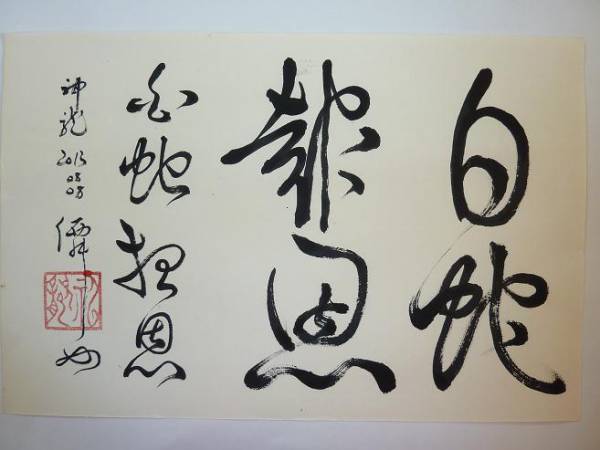 白蛇
報恩
白蛇報恩
神龍 2013
08
08